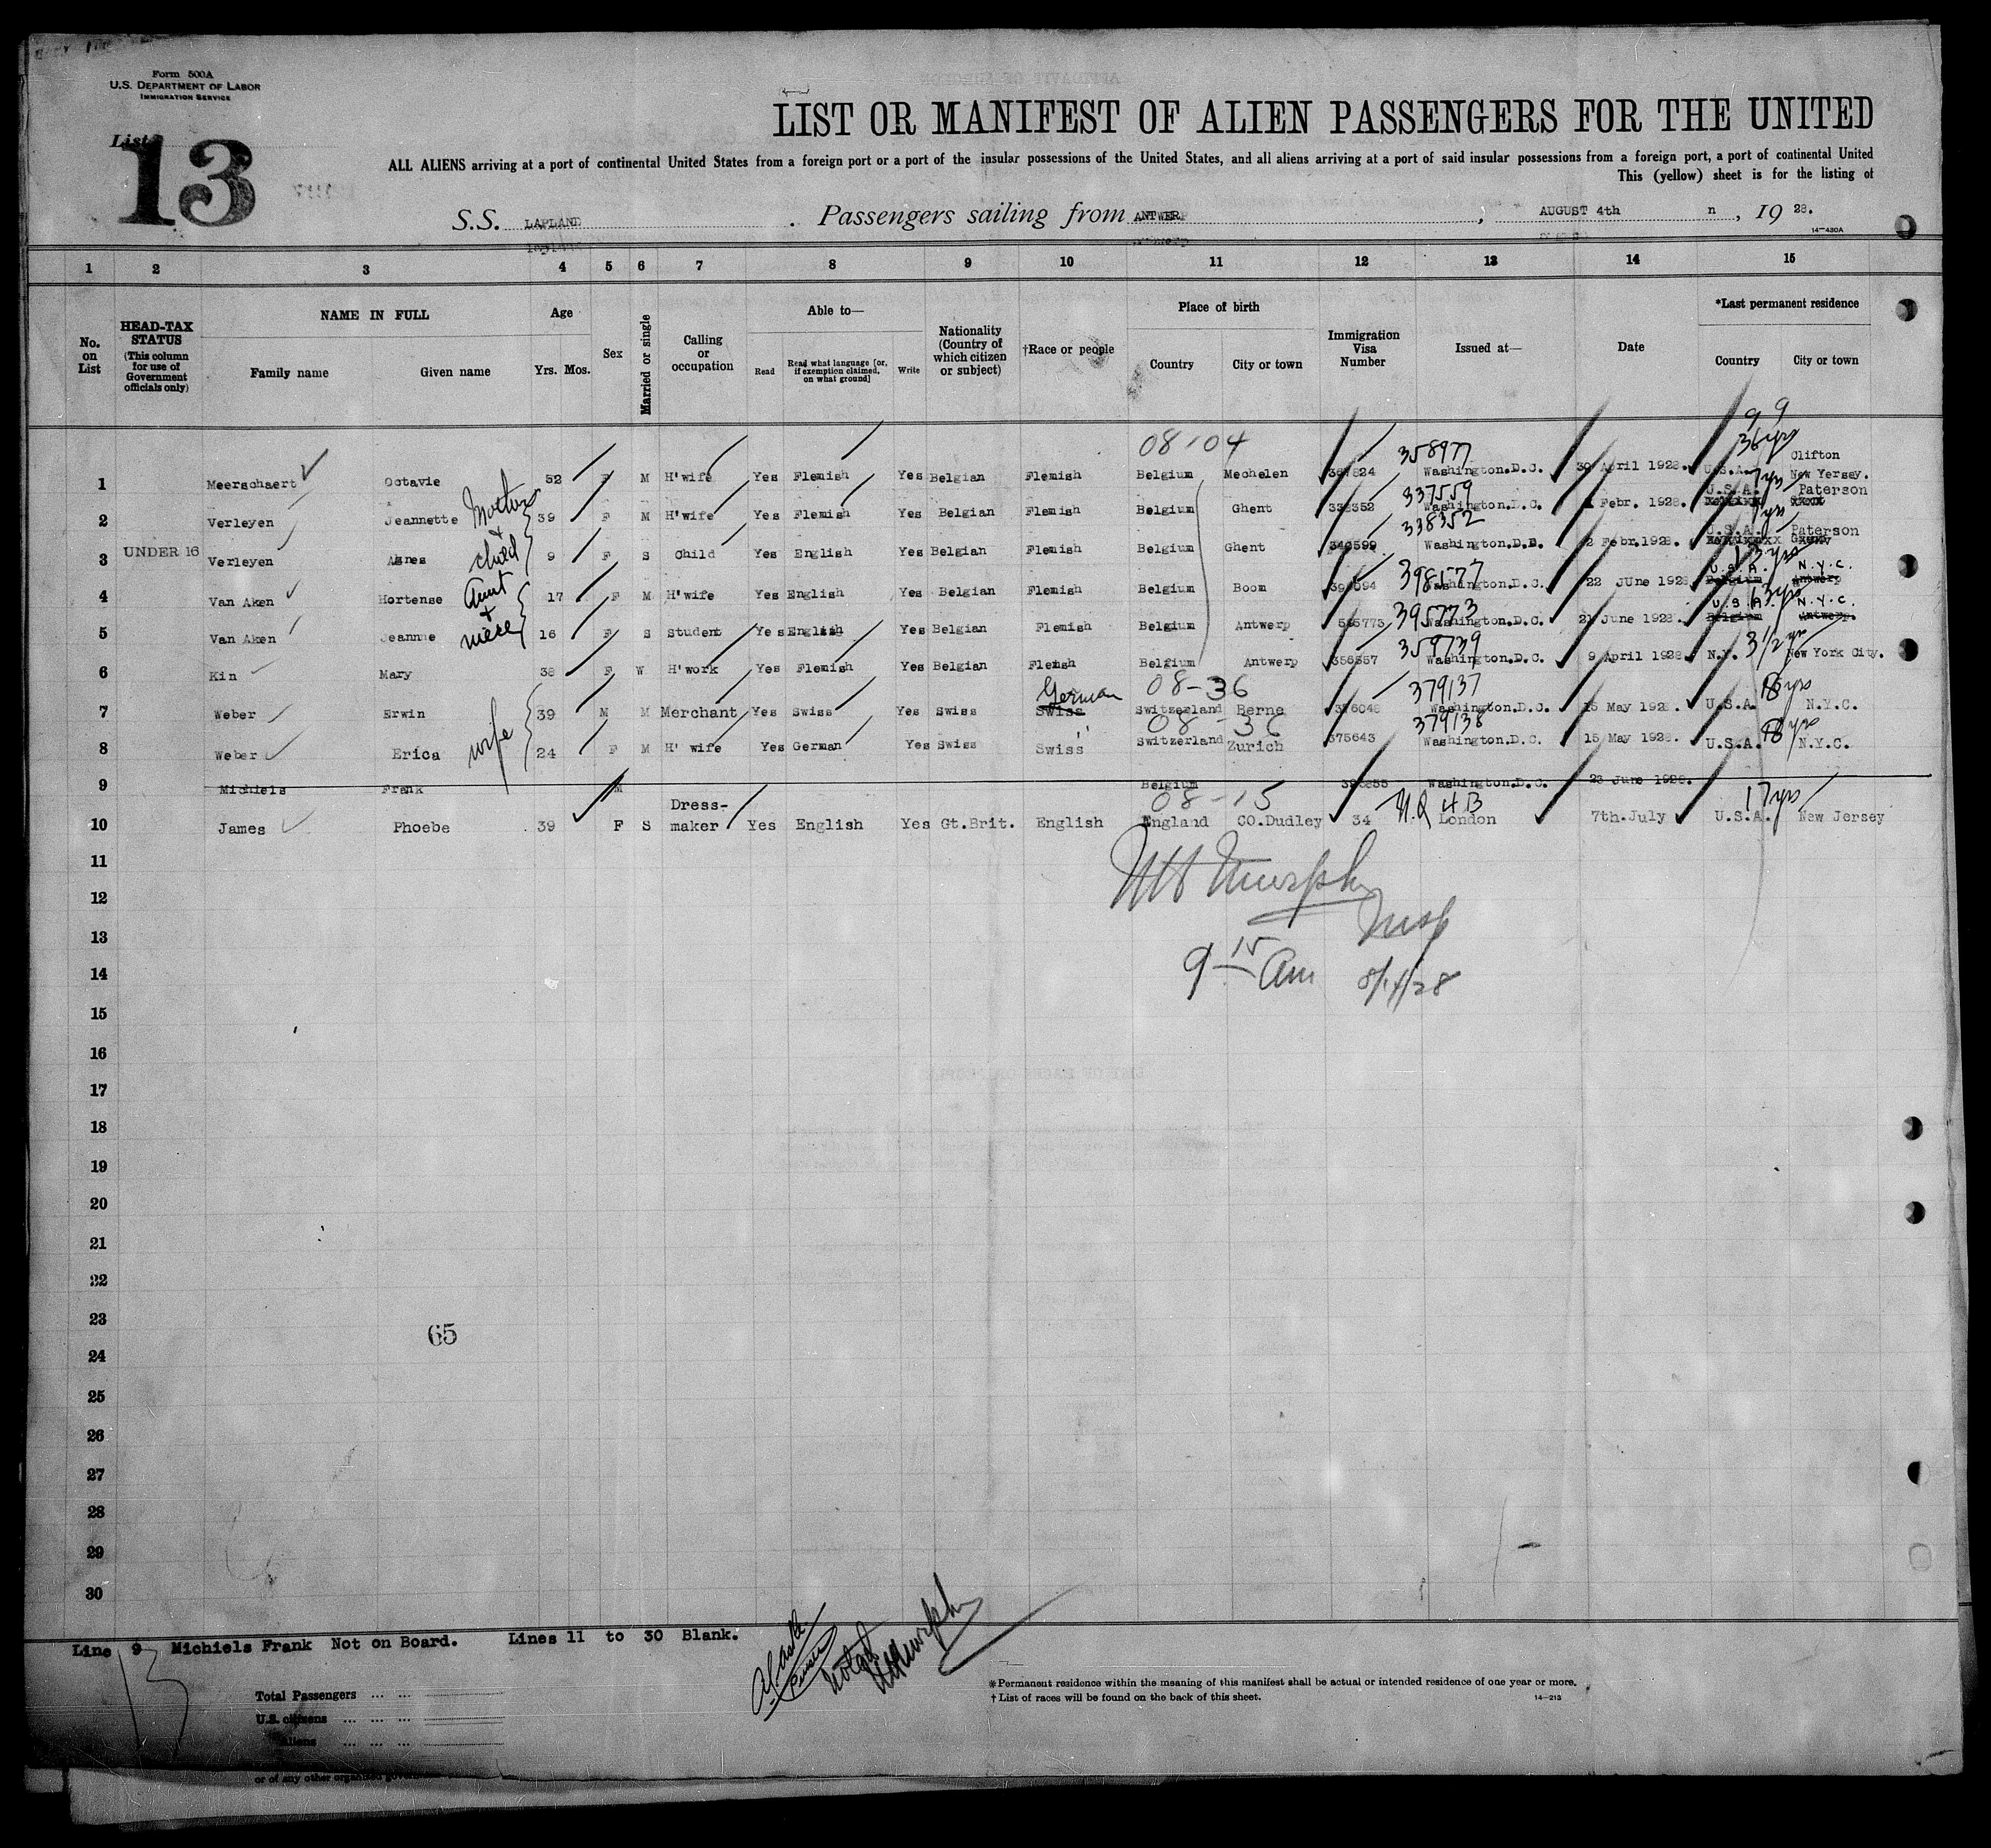 Form 500A
U.S. DEPARTMENT OF LABOR
IMMIGRATION SERVICE
List
13
LIST OR MANIFEST OF ALIEN PASSENGERS FOR THE UNITED
ALL ALIENS arriving at a port of continental United States from a foreign port or a port of the insular possessions of the United States, and all aliens arriving at a port of said insular possessions from a foreign port, a port of continental United
This (yellow) sheet is for the listing of
S.S. LAPLAND. Passengers sailing from ANTWERP, AUGUST 4th, 19 28.
14—430A
1 2 3 4 5 6 7 8 9 10 11 12 13 14 15
No. on List
HEAD-TAX STATUS (This column for use of Government officials only)
NAME IN FULL
Family name Given name
Age
Yrs. Mos.
Sex
Married or single
Calling or occupation
Able to—
Read Read what language [or, if exemption claimed, on what ground] Write
Nationality (Country of which citizen or subject)
†Race or people
Place of birth
Country City or town
Immigration Visa Number
Issued at—
Date
*Last permanent residence
Country City or town
08-04 358977 36 yrs Clifton
1 Meerschaert Octavie 52 F M H'wife Yes Flemish Yes Belgian Flemish Belgium Mechelen Washington.D.C. 30 April 1928. U.S.A. New Yersey.
Mother + child
337559 7 yrs U.S.A. Paterson
2 Verleyen Jeannette 39 F M H'wife Yes Flemish Yes Belgian Flemish Belgium Ghent Washington.D.C. Febr. 1928.
338352 7 yrs U.S.A. Paterson
3 UNDER 16 Verleyen Agnes 9 F S Child Yes English Yes Belgian Flemish Belgium Ghent 2 Febr.1928.
Aunt + niece
398577 13 yrs U.S.A. N.Y.C.
4 Van Aken Hortense 17 F M H'wife Yes English Yes Belgian Flemish Belgium Boom Washington.D.C. 22 JUne 1928 Belgium Antwerp
395773 13 yrs U.S.A. N.Y.C.
5 Van Aken Jeanne 16 F S Student Yes English Yes Belgian Flemish Belgium Antwerp Washington.D.C. 21 June 1928. Belgium Antwerp.
359739 3 1/2 yrs
6 Kin Mary 38 F W H'work Yes Flemish Yes Belgian Flemish Belgium Antwerp Washington.D.C. 9 April 1928. N.Y. New York City.
German 08-36 379137 18 yrs
7 Weber Erwin 39 M M Merchant Yes Swiss Yes Swiss Swiss Switzerland Berne Washington.D.C. 15 May 1928. U.S.A. N.Y.C.
wife
08-36 379138 8 yrs
8 Weber Erica 24 F M H' wife Yes German Yes Swiss Swiss Switzerland Zurich 375643 Washington.D.C. 15 May 1928. U.S.A. N.Y.C.
9 Michiels Frank M Belgium Washington.D.C. 23 June 1928.
08-15 N.Q 4B 17 yrs
10 James Phoebe 39 F S Dress-maker Yes English Yes Gt.Brit. English England CO.Dudley 34 London 7th.July U.S.A. New Jersey
11
Murphy
12
Insp
13
14
9 15 Am 8/14/28
15
16
17
18
19
20
21
22
23
65
24
25
26
27
28
29
30
Line 9 Michiels Frank Not on Board. Lines 11 to 30 Blank.
13
Total Passengers
U.S. citizens
Aliens
*Permanent residence within the meaning of this manifest shall be actual or intended residence of one year or more.
†List of races will be found on the back of this sheet.
14—213
or of any other organized government